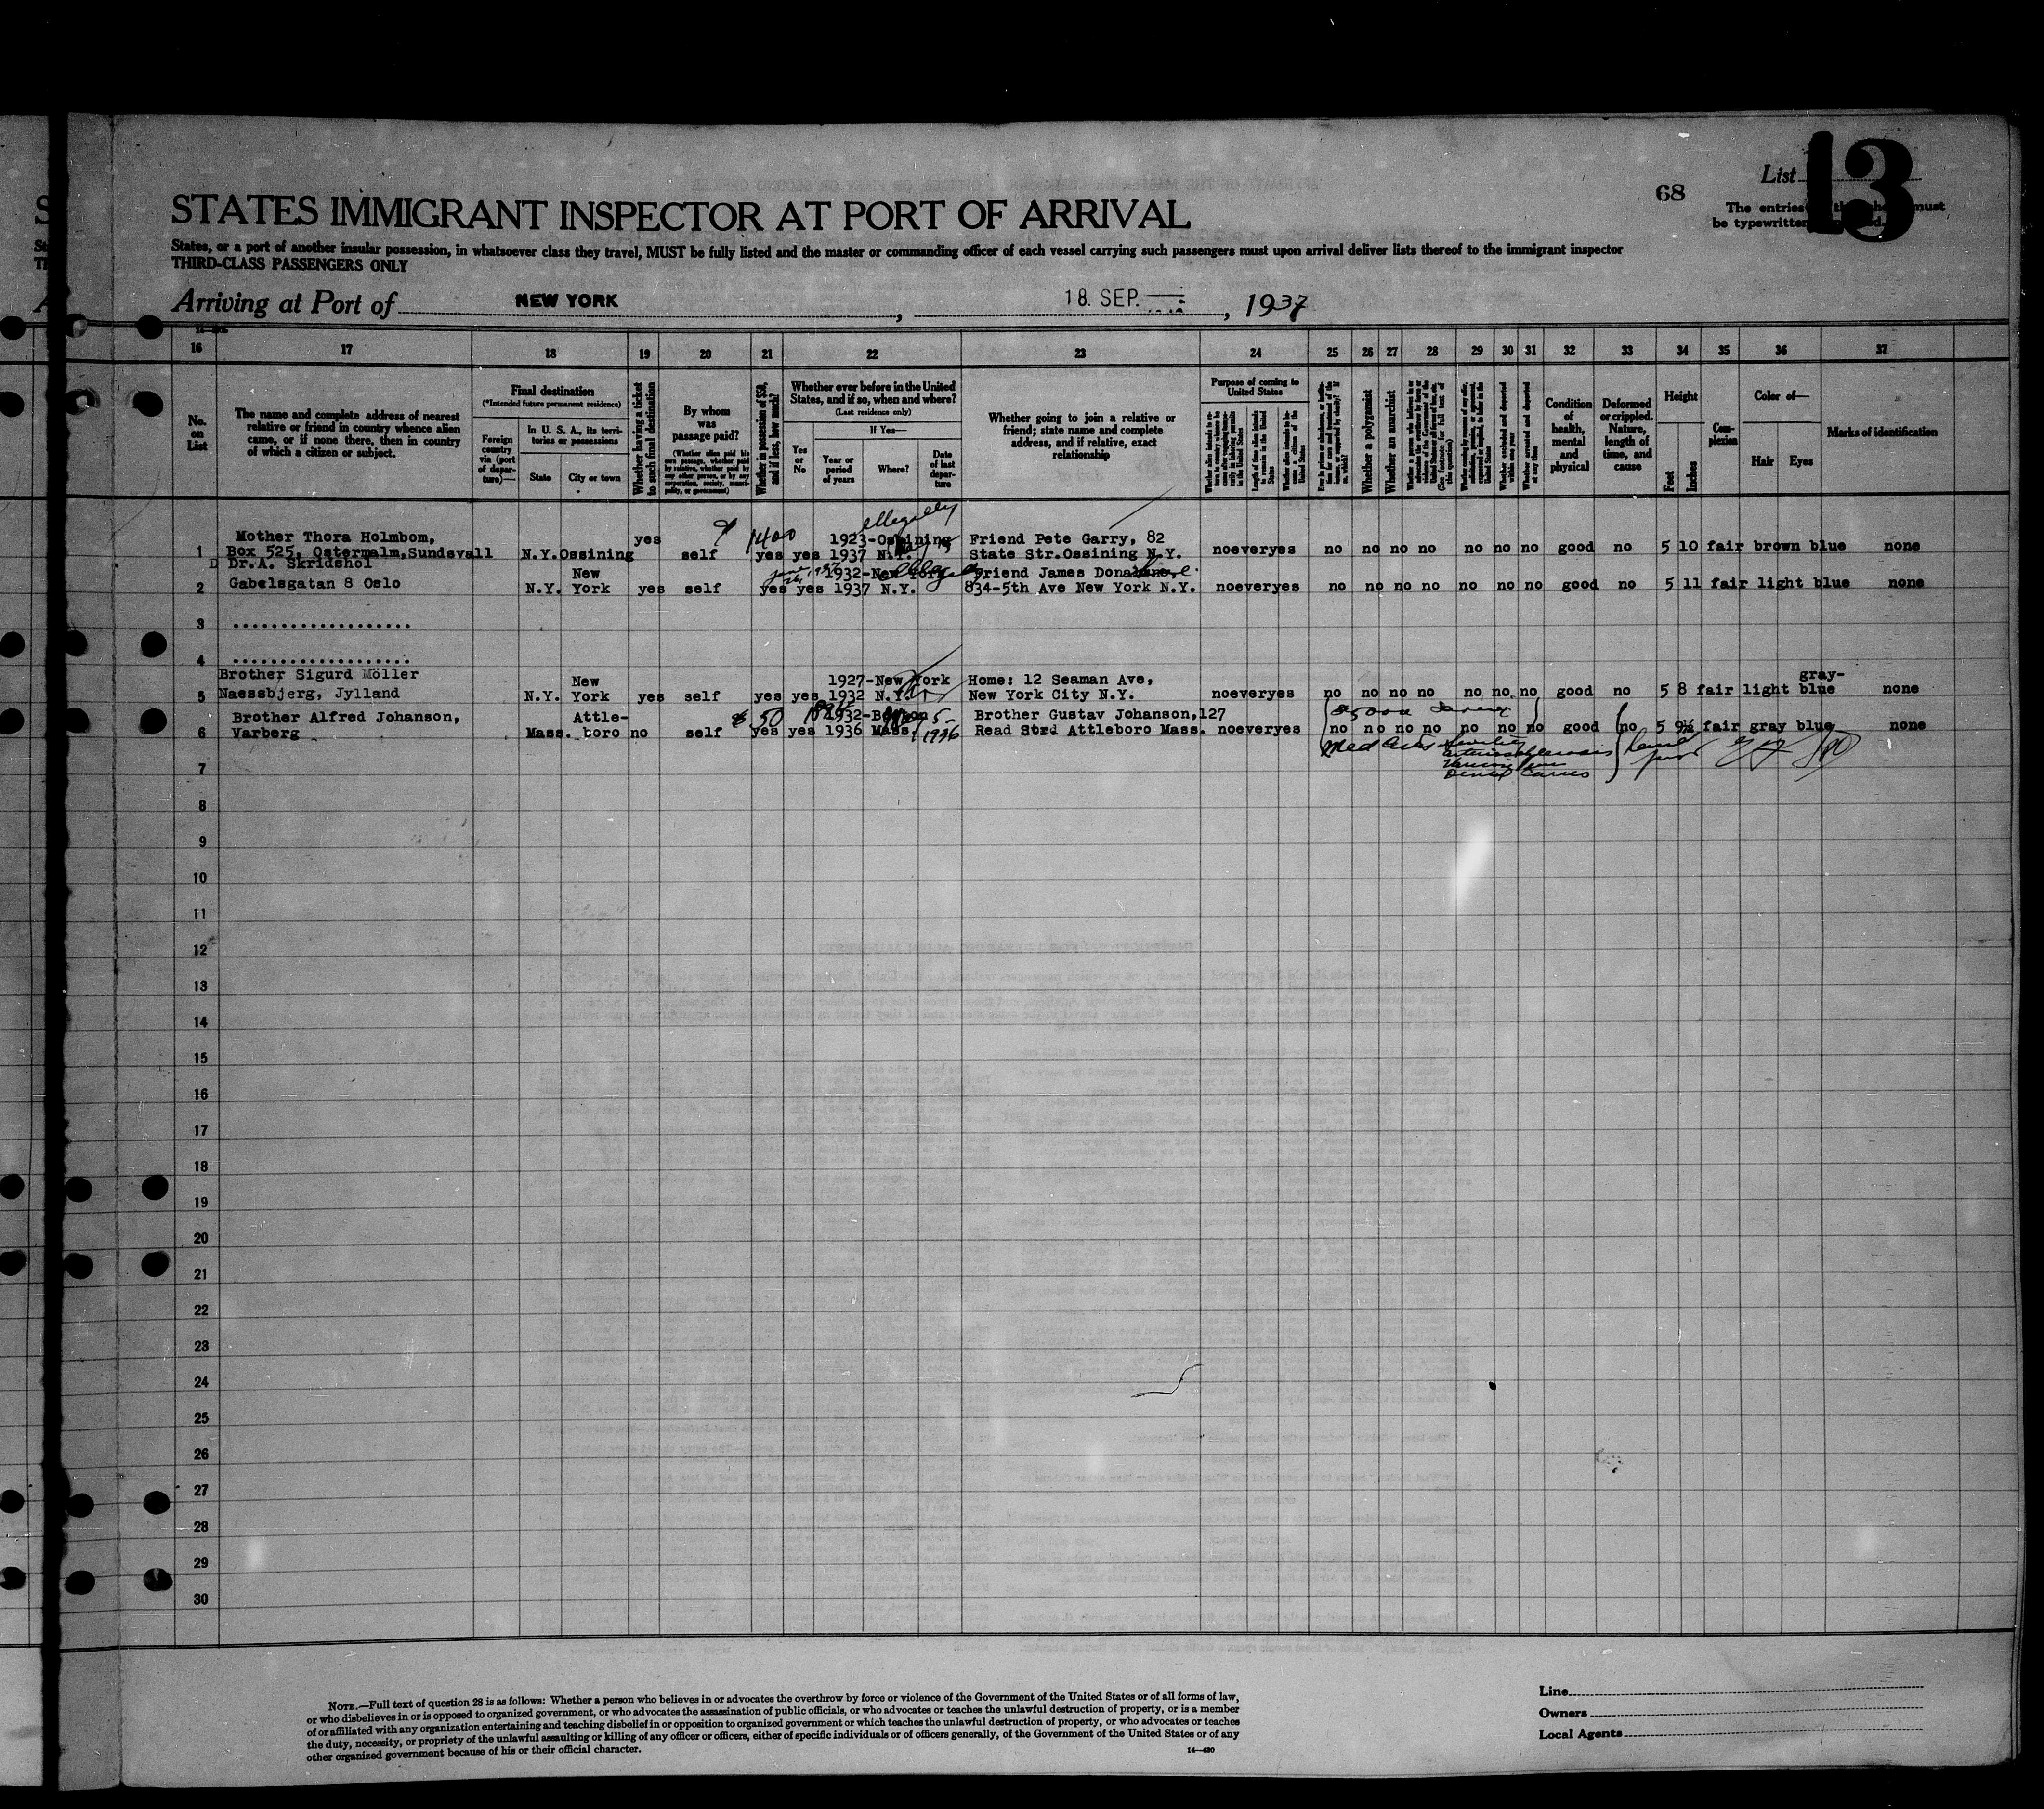 List 13
68
The entries must
be typewritten
STATES IMMIGRANT INSPECTOR AT PORT OF ARRIVAL
States, or a port of another insular possession, in whatsoever class they travel, MUST be fully listed and the master or commanding officer of each vessel carrying such passengers must upon arrival deliver lists thereof to the immigrant inspector
THIRD-CLASS PASSENGERS ONLY
Arriving at Port of NEW YORK , 18. SEP. , 1937
16 17 18 19 20 21 22 23 24 25 26 27 28 29 30 31 32 33 34 35 36 37
No. on List
The name and complete address of nearest relative or friend in country whence alien came, or if none there, then in country of which a citizen or subject.
Final destination
(*Intended future permanent residence)
Foreign country via (port of departure)—
In U. S. A., its territories or possessions
State
City or town
Whether having a ticket to such final destination
By whom was passage paid?
(Whether alien paid his own passage, whether paid by relative, whether paid by any other person, or by any corporation, society, municipality, or government)
Whether in possession of $50, and if less, how much?
Whether ever before in the United States, and if so, when and where?
(Last residence only)
Yes or No
If Yes—
Year or period of years
Where?
Date of last departure
Whether going to join a relative or friend; state name and complete address, and if relative, exact relationship
Purpose of coming to United States
Whether a polygamist
Whether an anarchist
Condition of health, mental and physical
Deformed or crippled. Nature, length of time, and cause
Height
Feet
Inches
Complexion
Color of—
Hair
Eyes
Marks of identification
illegally
Mother Thora Holmbom, yes 1400 1923-Ossining Friend Pete Garry, 82
1 Box 525, Ostermalm,Sundsvall N.Y.Ossining self yes yes 1937 N.Y. State Str.Ossining N.Y. noeveryes no no no no no no no good no 5 10 fair brown blue none
D Dr.A. Skridshol New 1932-New York Friend James
2 Gabelsgatan 8 Oslo N.Y. York yes self yes yes 1937 N.Y. 834-5th Ave New York N.Y. noeveryes no no no no no no no good no 5 11 fair light blue none
3 ...................
4 ...................
Brother Sigurd Möller New 1927-New York Home: 12 Seaman Ave, gray-
5 Naessbjerg, Jylland N.Y. York yes self yes yes 1932 N.Y. New York City N.Y. noeveryes no no no no no no no good no 5 8 fair light blue none
Brother Alfred Johanson, Attle- $ 50 1932-Boston Brother Gustav Johanson,127
6 Varberg Mass. boro no self yes yes 1936 Mass. 1936 Read Strd Attleboro Mass. noeveryes no no no no no no no good no 5 9½ fair gray blue none
Med Cert Senility
arteriosclerosis
Dental Caries
7
8
9
10
11
12
13
14
15
16
17
18
19
20
21
22
23
24
25
26
27
28
29
30
NOTE.—Full text of question 28 is as follows: Whether a person who believes in or advocates the overthrow by force or violence of the Government of the United States or of all forms of law,
or who disbelieves in or is opposed to organized government, or who advocates the assassination of public officials, or who advocates or teaches the unlawful destruction of property, or is a member
of or affiliated with any organization entertaining and teaching disbelief in or opposition to organized government or which teaches the unlawful destruction of property, or who advocates or teaches
the duty, necessity, or propriety of the unlawful assaulting or killing of any officer or officers, either of specific individuals or of officers generally, of the Government of the United States or of any
other organized government because of his or their official character.
14—430
Line
Owners
Local Agents